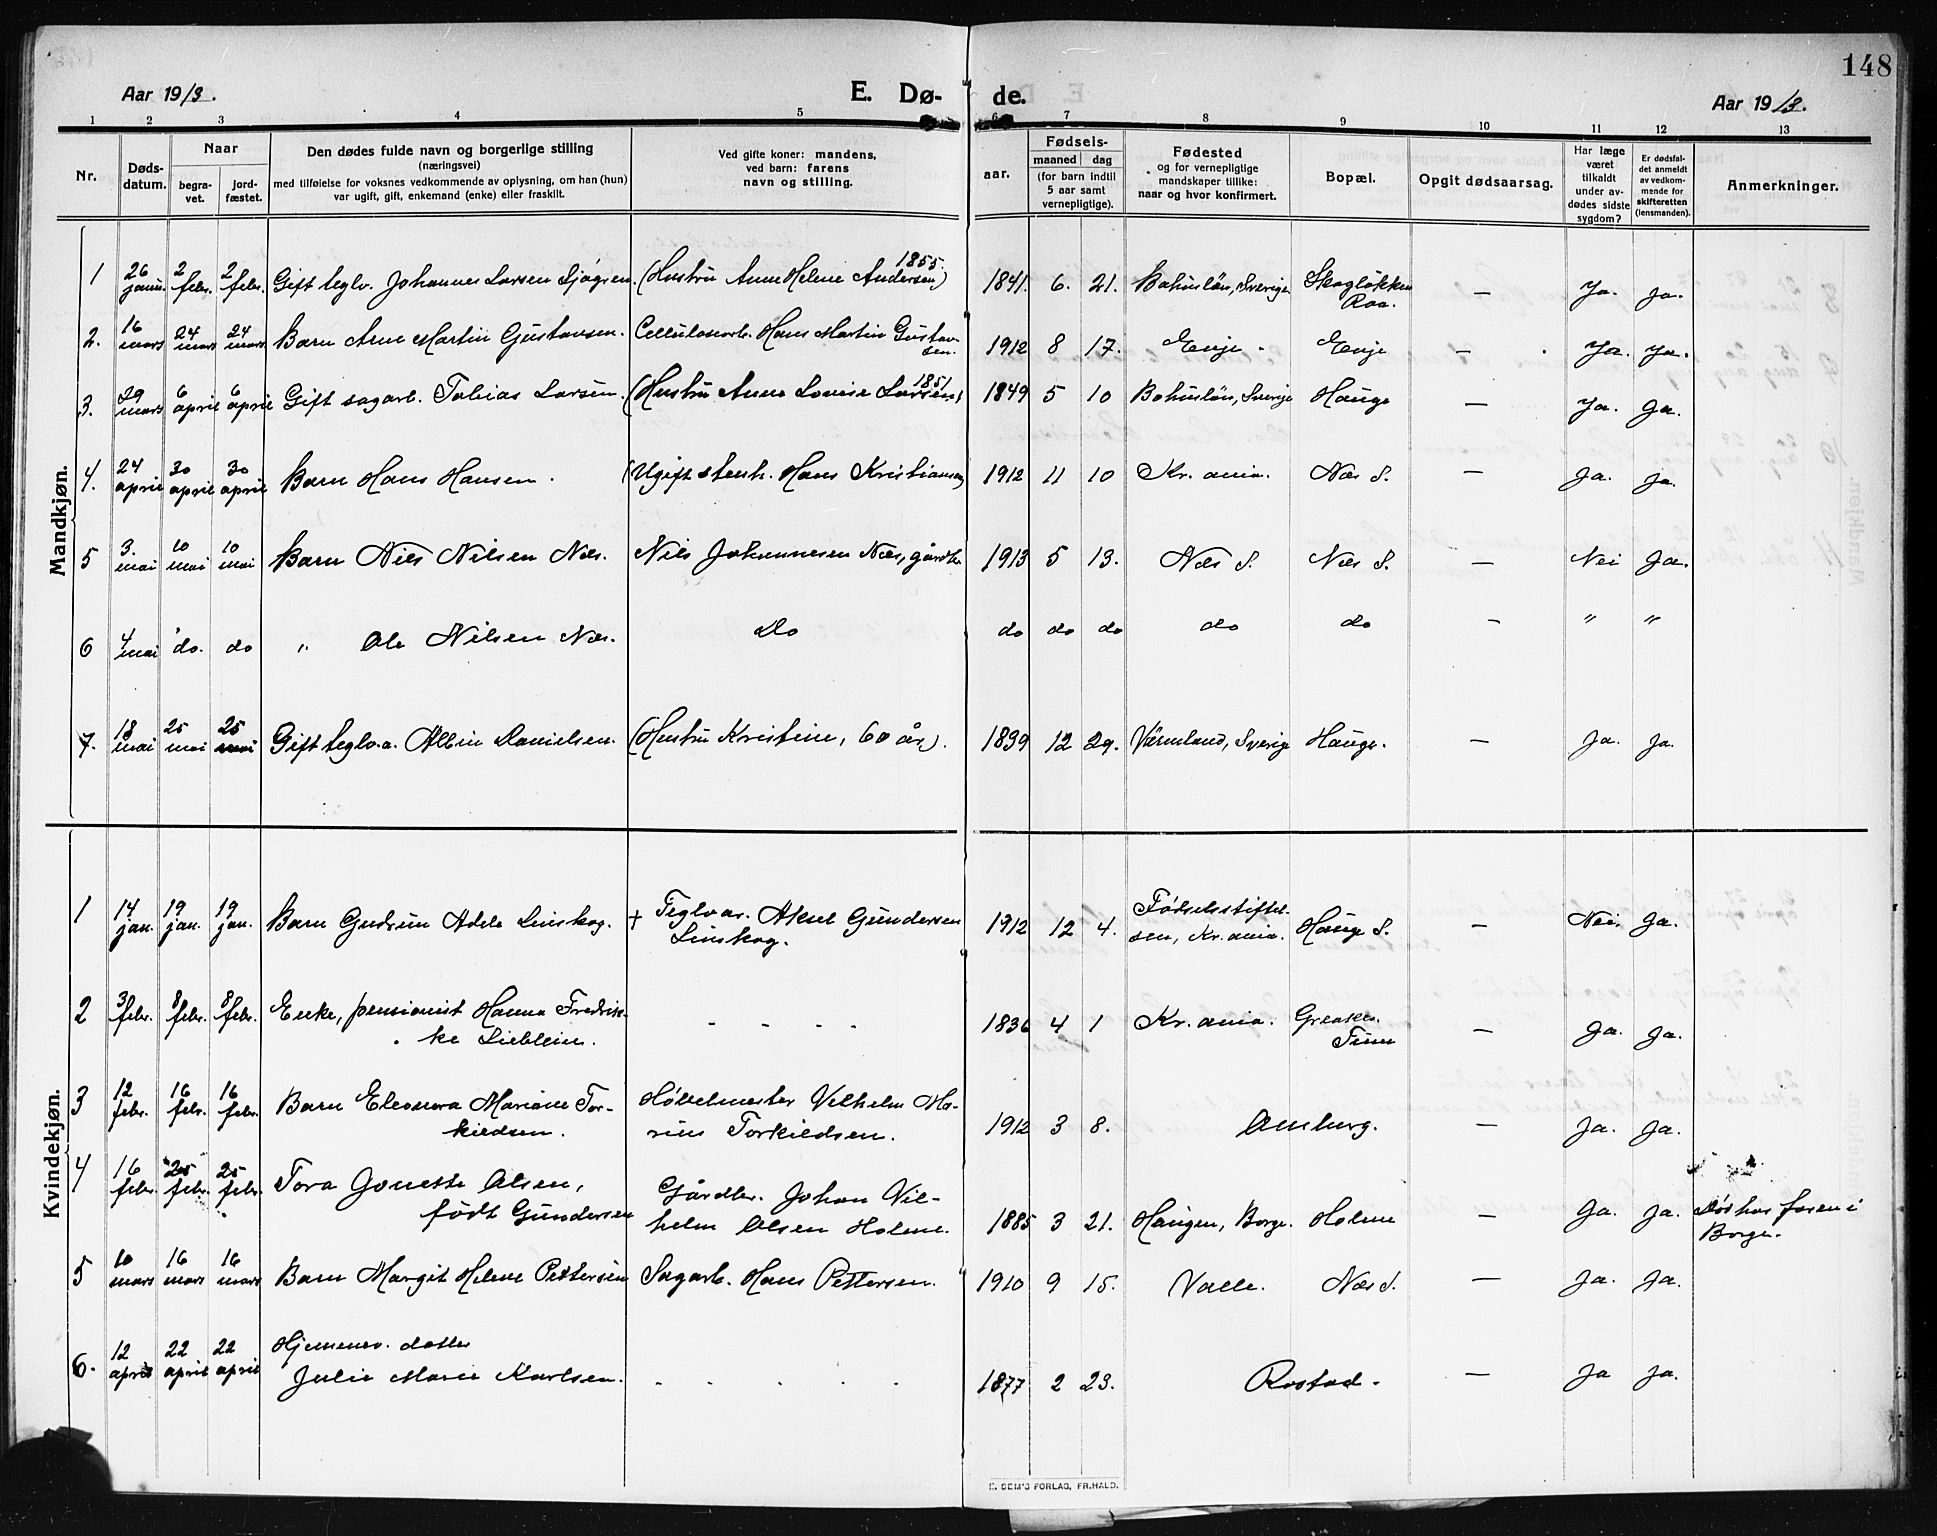 148
Aar 1913. E. Dø- de. Aar 1913.
1 2 3 4 5 6 7 8 9 10 11 12 13
Nr.
Døds-
datum.
Naar
begra-
vet.
jord-
fæstet.
Den dødes fulde navn og borgerlige stilling
(næringsvei)
med tilføielse for voksnes vedkommende av oplysning, om han (hun)
var ugift, gift, enkemand (enke) eller fraskilt.
Ved gifte koner: mandens,
ved barn: farens
navn og stilling.
Fødsels-
aar.
maaned dag
(for barn indtil
5 aar samt
vernepligtige).
Fødested
og for vernepligtige
mandskaper tillike:
naar og hvor konfirmert.
Bopæl.
Opgit dødsaarsag.
Har læge
været
tilkaldt
under av-
dødes sidste
sygdom?
Er dødsfal-
det anmeldt
av vedkom-
mende for
skifteretten
(lensmanden).
Anmerkninger.
Mandkjøn.
1 26 janu. 2 febr. 2 febr. Gift teglv. Johannes Larsen Sjøgren. (Hustru Anne Helene Andersen) 1855. 1841. 6. 21. Bohuslän, Sverige Skogløkken Raa. — Ja. ja.
2. 16 mars 24 mars 24 mars Barn Arne Martin Gustavsen. Cellulosearb. Hans Martin Gustav-
sen. 1912 8 17. Enje. Enje — Ja. Ja.
3. 29 mars 6 april 6 april Gift sagarb. Tobias Larsen. (Hustru Anne Lovise Larsen, 1851) 1849 5 10 Bohuslän, Sverige Hauge — Ja. Ja.
4. 24 april 30 april 30 april Barn Hans Hansen. (Ugift stenh. Hans Kristiansen) 1912 11 10 Kr. ania. Næs S. — Ja. Ja.
5 3. mai 10 mai 10 mai Barn Nils Nilsen Næs. Nils Johannesen Næs, gårdbr. 1913 5 13. Næs S. Næs S. — Nei Ja.
6 4 mai do. do " Ole Nilsen Næs. Do do do do do do — " "
7. 18 mai 25 mai 25 mai Gift teglv.a. Albin Danielsen. (Hustru Kristine, 60 år). 1839 12 29. Värmland, Sverige Hauge. — Ja. Ja.
Kvindekjøn.
1 14 jan. 19 jan. 19 jan. Barn Gudrun Adele Linskog. + Teglvar. Aksel Gundersen
Linskog. 1912 12 4. Fødselsstiftel-
sen, Kr. ania. Hauge S. — Nei. Ja.
2 3 febr. 8 febr. 8 febr. Enke, pensionist Hanna Fredrik-
ke Lieblein. - - - - 1836 4 1 Kr. ania. Greaker.
Tune — Ja. Ja.
3 12 febr. 16 febr. 16 febr. Barn Eleonora Mariane Tor-
kildsen. Høvelmester Vilhelm Ma-
rius Torkildsen. 1912 3 8. Amburg. — Ja. Ja.
4 16 febr. 25 febr. 25 febr. Tora Jonette Olsen,
født Gundersen Gårdbr. Johan Vil-
helm Olsen Holme. 1885 3 21. Haugen, Borge. Holme — Ja. Ja. Død hos faren i
Borge.
5 10 mars 16 mars 16 mars Barn Margit Helene Pettersen Sagarb. Hans Pettersen. 1910 9 15. Valle. Næs S. — Ja. Ja.
6. 12 april 22 april 22 april Hjemmev. datter
Julie Marie Karlsen. - - - - - 1877 2 23. Rostad. — Ja Ja.
E. SEM'S FORLAG, FR.HALD.